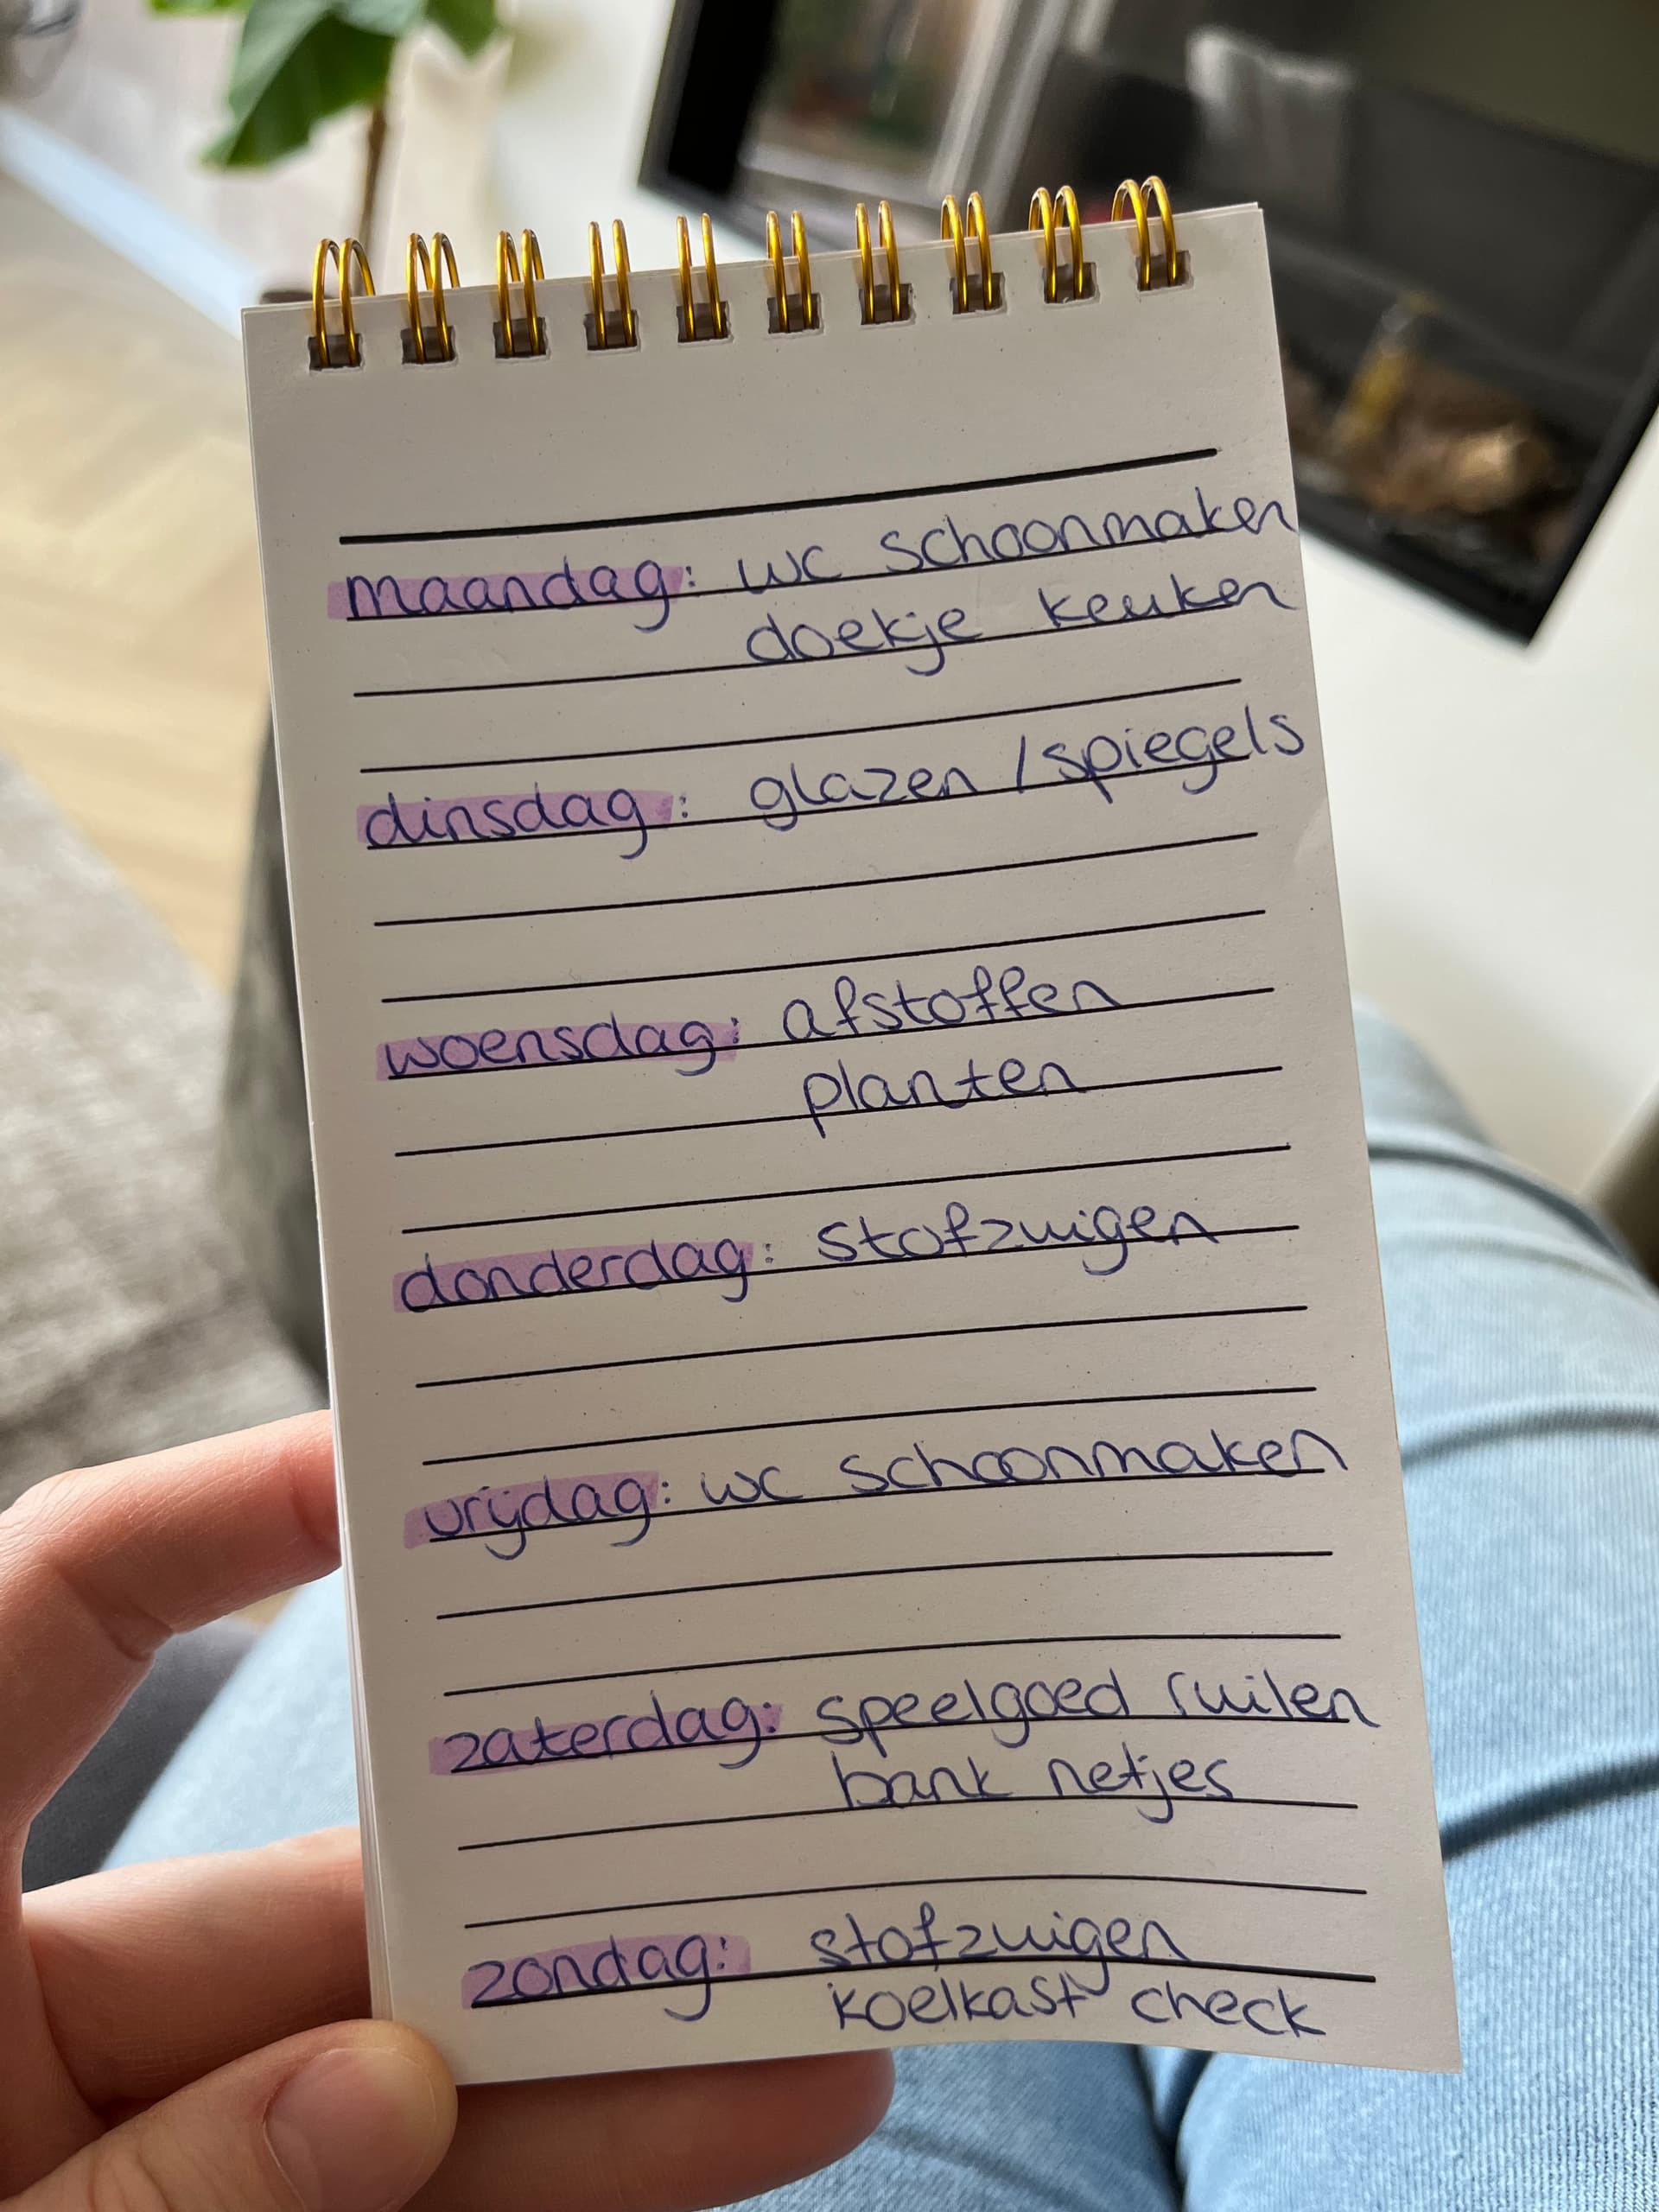 maandag: wc schoonmaken
doekje keuken
dinsdag: glazen / spiegels
woensdag: afstoffen
planten
donderdag: stofzuigen
vrijdag: wc schoonmaken
zaterdag: speelgoed ruilen
bank netjes
zondag: stofzuigen
koelkast check